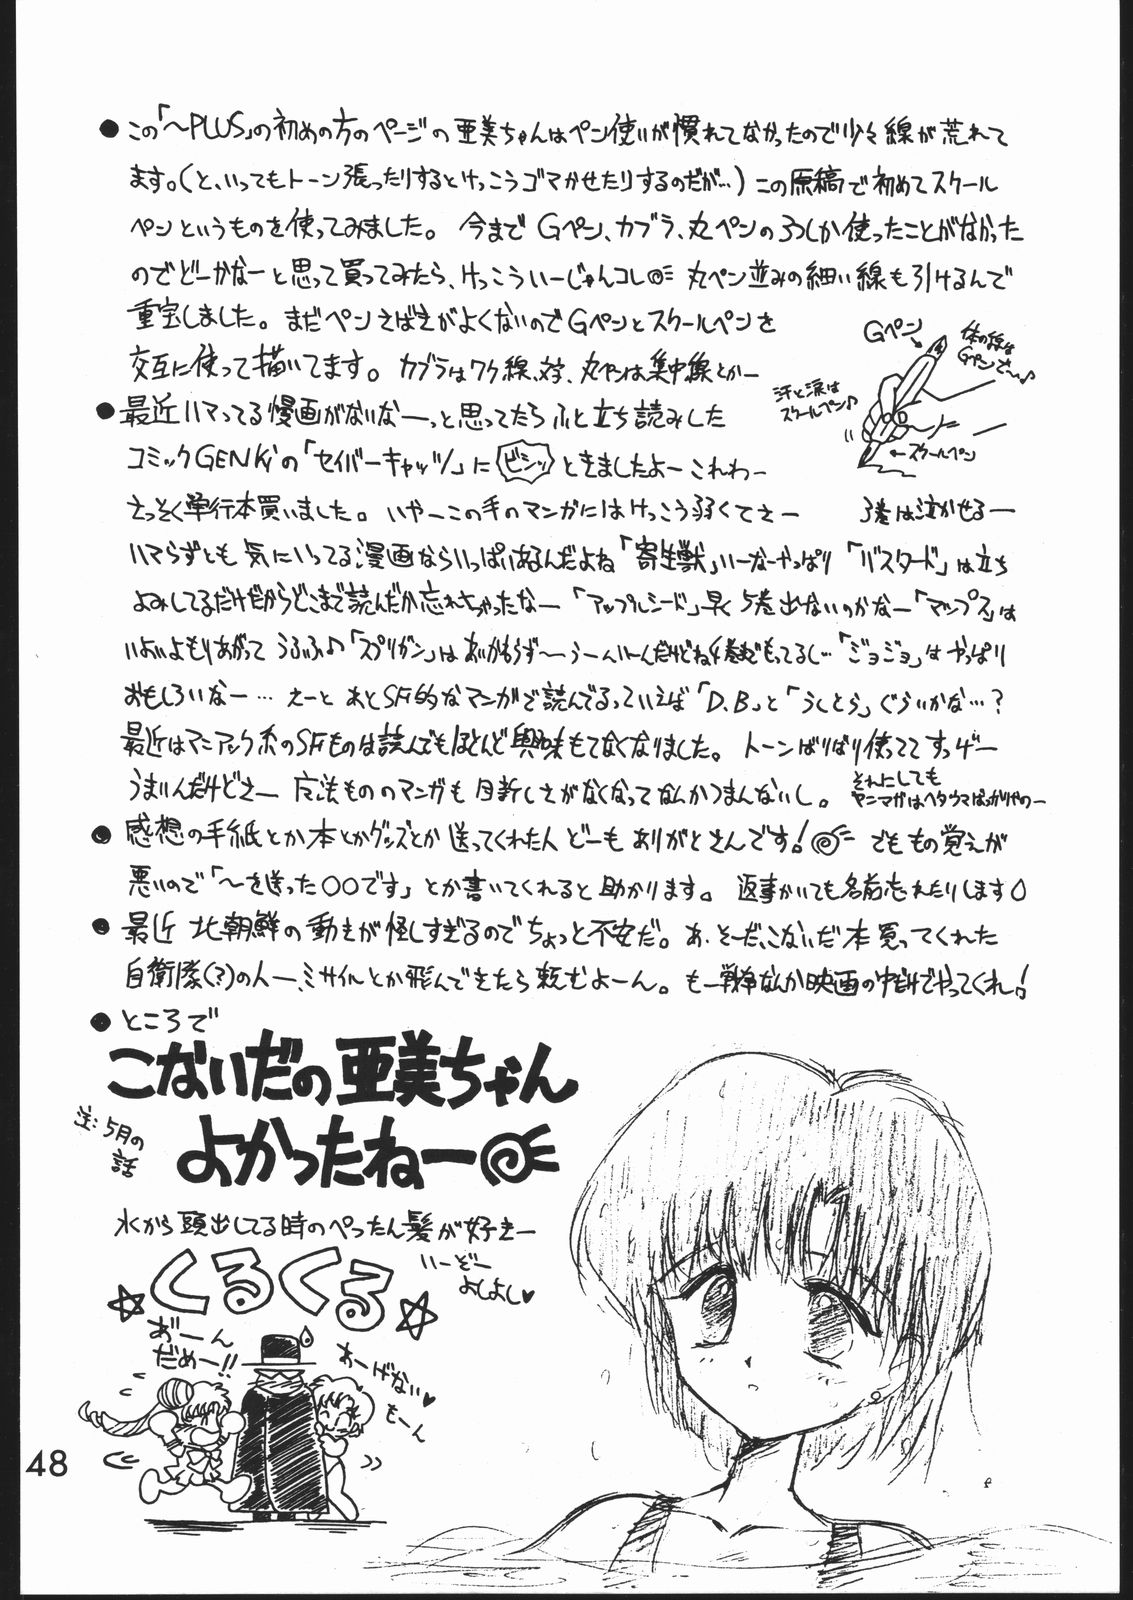 ●この「〜PLUS」の初めの方のページの亜美ちゃんはペン使いが慣れてなかったので少々線が荒れて
ます。(と、いってもトーン張ったりするとけっこうゴマかせたりするのだが…)この原稿で初めてスクール
ペンというものを使ってみました。今までGペン、カブラ、丸ペンの3つしか使ったことがなかった
のでどーかなーと思って買ってみたら、けっこういーじゃんコレ 丸ペン並みの細い線も引けるんで
重宝しました。まだペンさばきがよくないのでGペンとスクールペンを
交互に使って描いてます。カブラはワク線、文字、丸ペンは集中線とかー
Gペン
体の線は
Gペンでぃ〜♪
汗と涙は
スクールペン♪
←スクールペン
●最近ハマってる漫画がないなーっと思ってたらふと立ち読みした
コミックGENKiの「セイバーキャッツ」に ビシッ ときましたよー これわー
さっそく単行本買いました。いやーこの手のマンガにはけっこう弱くてさー 3巻は泣かせるー
ハマらずとも気にいってる漫画ならいっぱいあるんだよね「寄生獣」いーなーやっぱり「バスタード」は立ち
よみしてるだけだからどこまで読んだか忘れちゃったなー「アップルシード」早く5巻出ないのかなー「マップス」は
いよいよもりあがって うふふ♪「スプリガン」はあいかわらず〜うーんいーんだけどね 巻までもってるし…「ジョジョ」はやっぱり
おもしろいなー…えーと あとSF的なマンガで読んでるっていえば「D.B」と「うしとら」ぐらいかな…?
最近はマニアック系のSFものは読んでもほとんど興味もてなくなりました。トーンばりばり使っててすっげー
うまいんだけどさー 魔法もののマンガも目新しさがなくなってなんかつまんないし。
それにしても
ヤンマガはヘタウマばっかりやのー
●感想の手紙とか本とかグッズとか送ってくれた人どーもありがとさんです! でももの覚えが
悪いので「〜を送った○○です」とか書いてくれると助かります。返事かいても名前忘れたりします
●最近北朝鮮の動きが怪しすぎるのでちょっと不安だ。あ、そーだ、こないだ本買ってくれた
自衛隊(?)の人ー、ミサイルとか飛んできたら頼むよーん。もー戦争なんか映画の中だけでやってくれ!
●ところで
こないだの亜美ちゃん
よかったねー
注:5月の
話
水から頭出してる時のぺったん髪が好きー
いーぞー
よしよし♥
☆くるくる☆
あ゛ーん
だめー!!
あーげない♥
もーん
48